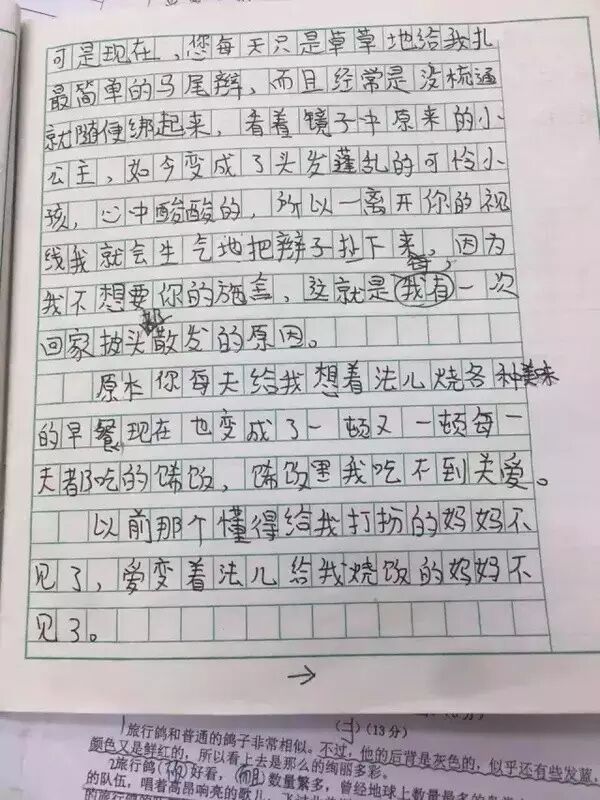 可是现在，您每天只是草草地给我扎
最简单的马尾辫，而且经常是没梳通
就随便绑起来，看着镜子中原来的小
公主，如今变成了头发蓬乱的可怜小
孩，心中酸酸的，所以一离开你的视
线我就会生气地把辫子扯下来，因为
我不想要你的施舍，这就是我有每一次
回家都披头散发的原因。
原本你每天给我想着法儿烧各种美味
的早餐现在也变成了一顿又一顿每一
天都吃的馇饭，馇饭里我吃不到关爱。
以前那个懂得给我打扮的妈妈不
见了，爱变着法儿给我烧饭的妈妈不
见了。
→
(13分)
旅行鸽和普通的鸽子非常相似。不过，他的后背是灰色的，似乎还有些发蓝，
颜色又是鲜红的，所以看上去是那么的绚丽多彩。
2旅行鸽 好看，而且数量繁多，曾经地球上数量最多的鸟
的队伍，唱着高昂响亮的歌儿，